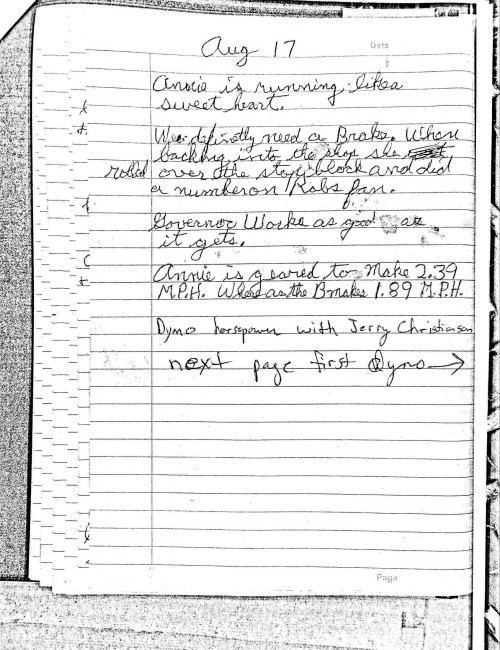 Aug 17
Date
Annie is running like a
sweet heart.
We definetly need a Brake. When
backing into the shop she
rolled over the stop block and did
a number on Robs fan.
Governor Works as good as
it gets.
Annie is geared to Make 2.39
M.P.H. Where as the B makes 1.89 M.P.H.
Dyno horsepower with Jerry Christianson
next page first Dyno →
Page